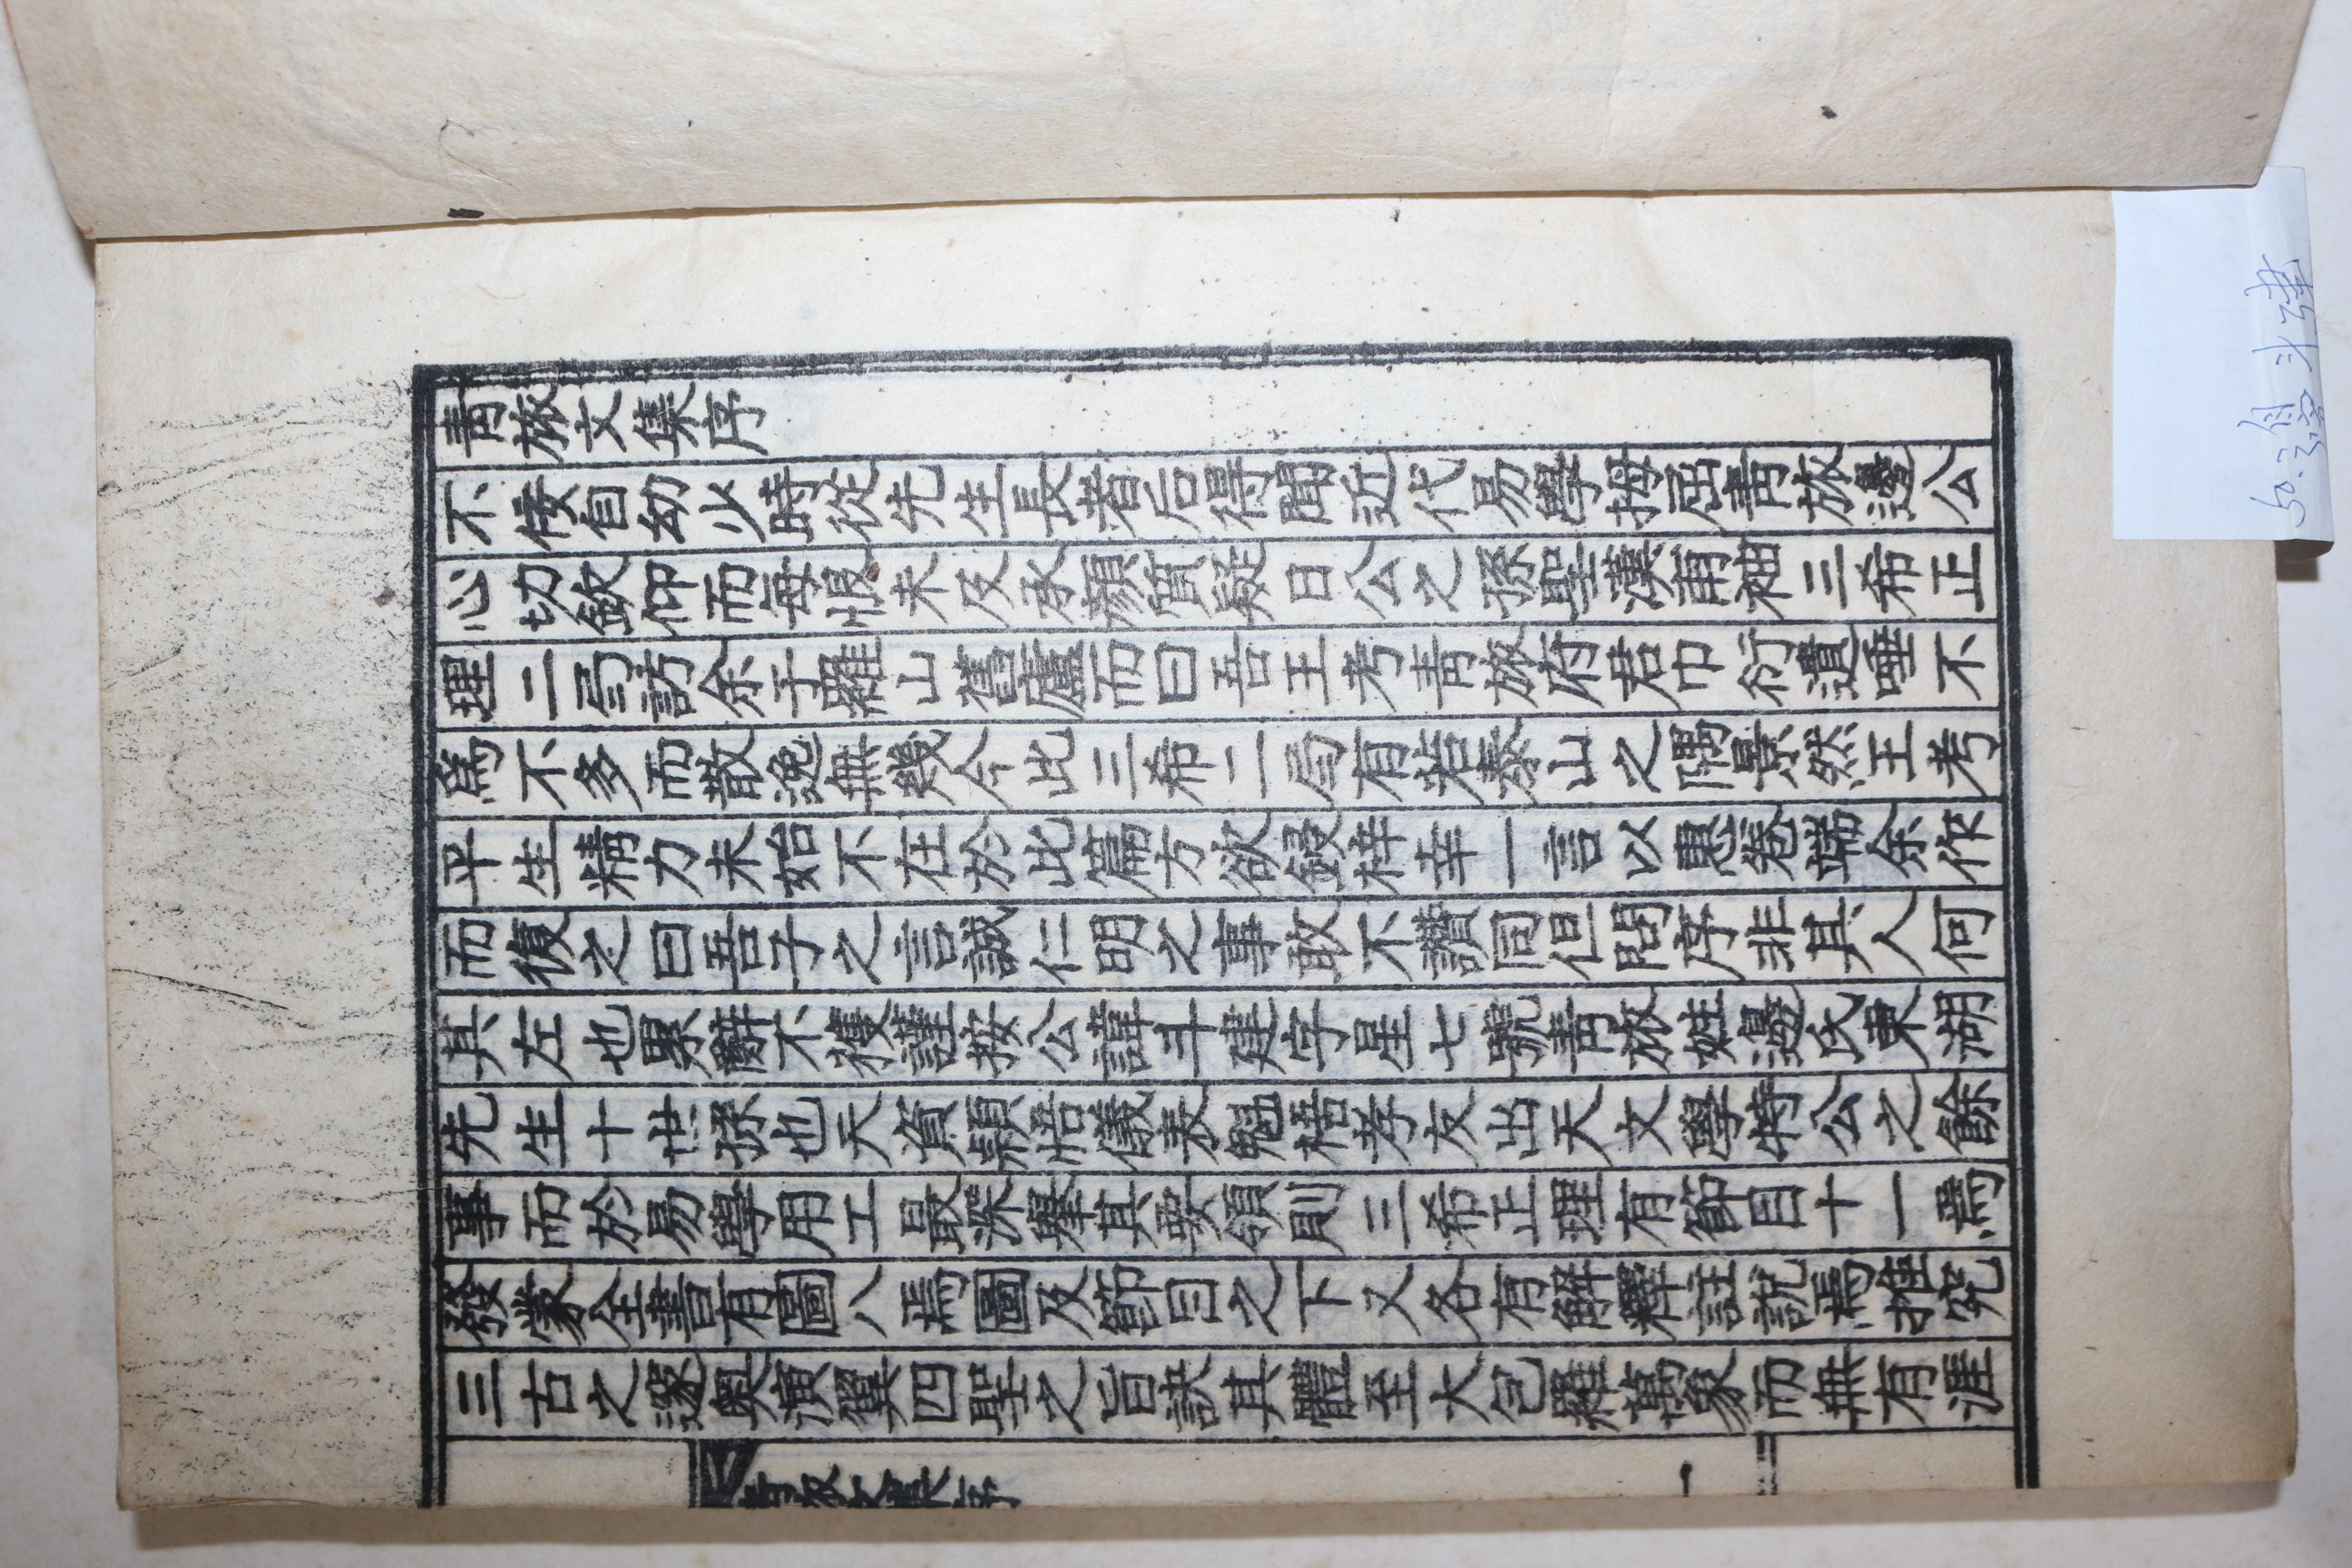 靑旅文集序
不佞自幼少時從先生長者后得聞近代易學拇屈靑旅邊公
心切欽仰而每恨未及承顔質疑日公之孫聖漢甭袖三希正
理二局訪余于羅山舊廬而曰吾王考靑旅府君巾衍遺唾不
爲不多而散逸無幾今此三希二局有若泰山之隅景然王考
平生精力未始不在於此篇方欲鋟梓幸一言以惠卷端余作
而復之曰吾子之言誠仁明之事敢不讚同但問序非其人何
其左也累辭不獲謹按公諱斗建字星七號靑旅姓邊氏東湖
先生十世孫也天資穎悟儀表魁梧孝友出天文學特公之餘
事而於易學用工最深擧其要領則三希正理有節目十一爲
發蒙全書有圖八焉圖及節目之下又各有解釋註說焉推究
三古之邃奧演翼四聖之旨訣其體至大包羅萬象而無有涯
靑旅文集序
一
50.邊斗建